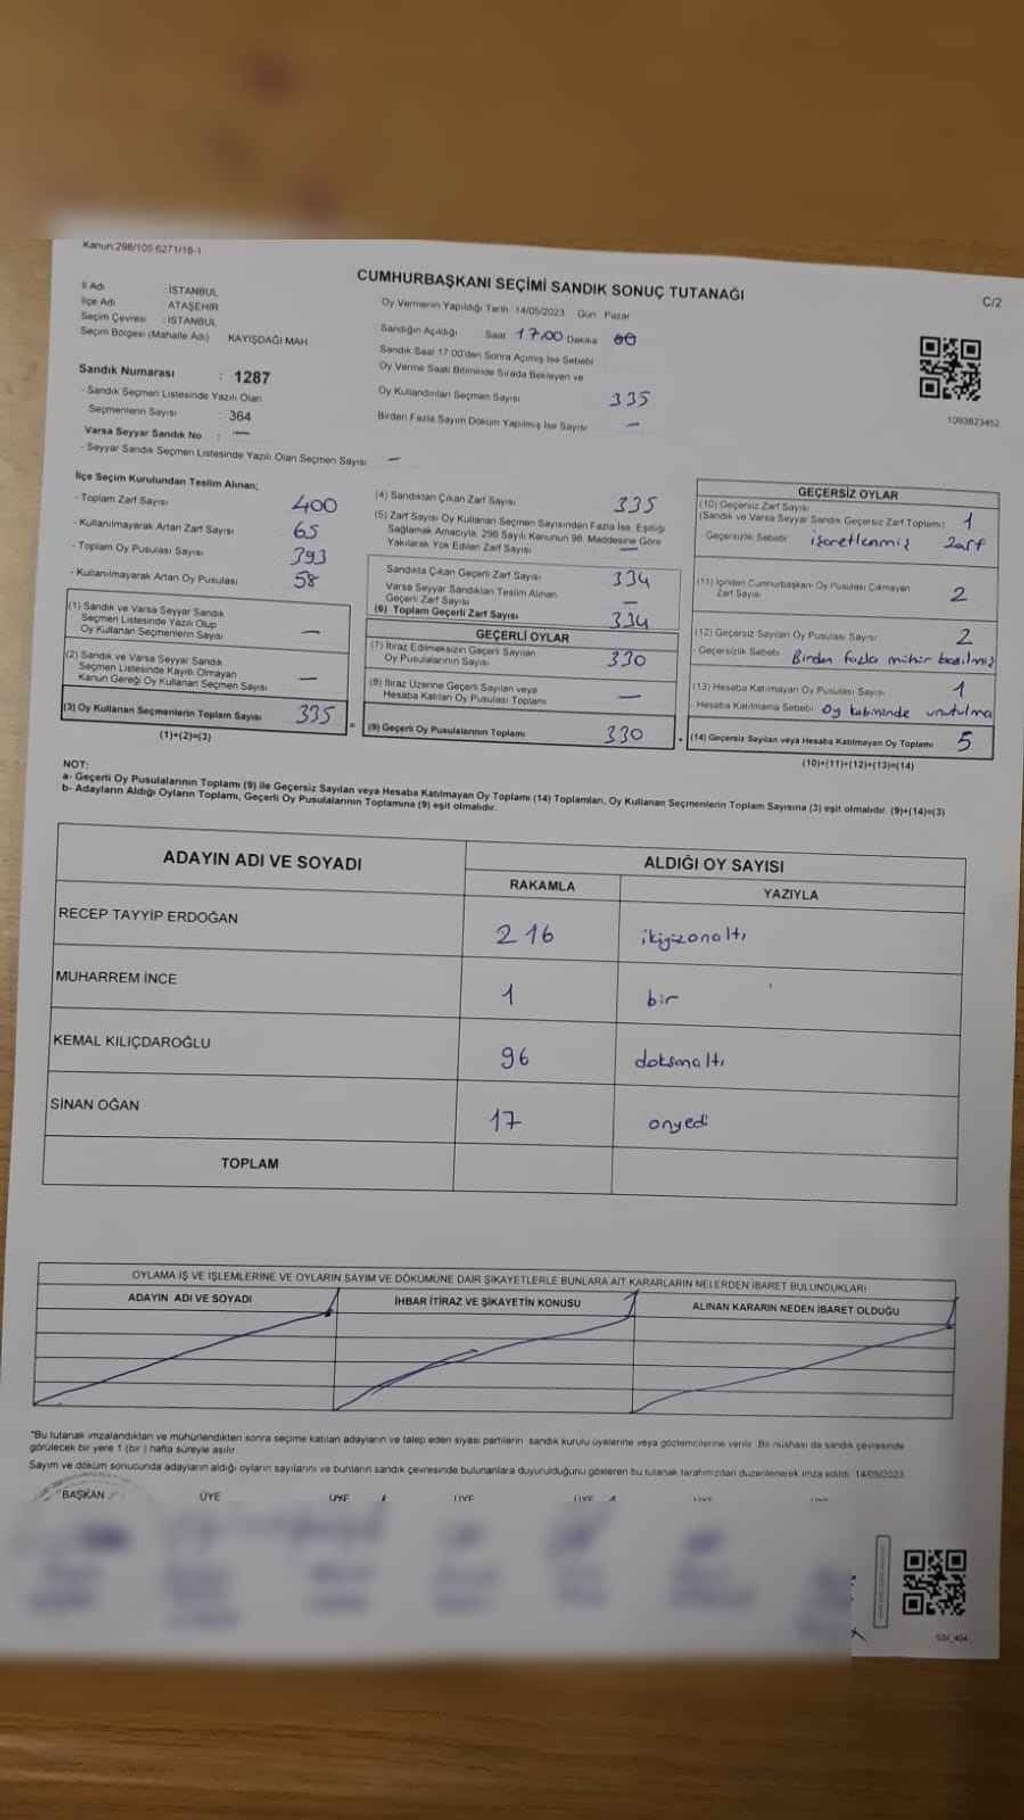 Kanun:298/105 6271/16-1
CUMHURBAŞKANI SEÇİMİ SANDIK SONUÇ TUTANAĞI
C/2
İl Adı : İSTANBUL
İlçe Adı : ATAŞEHİR
Seçim Çevresi : İSTANBUL
Seçim Bölgesi (Mahalle Adı) KAYIŞDAĞI MAH
Oy Vermenin Yapıldığı Tarih 14/05/2023 Gün Pazar
Sandığın Açıldığı Saat 17.00 Dakika 00
Sandık Saat 17:00'den Sonra Açılmış İse Sebebi
Oy Verme Saati Bitiminde Sırada Bekleyen ve
Oy Kullandırılan Seçmen Sayısı 335
Birden Fazla Sayım Döküm Yapılmış İse Sayısı —
1093823452
Sandık Numarası : 1287
- Sandık Seçmen Listesinde Yazılı Olan
Seçmenlerin Sayısı : 364
Varsa Seyyar Sandık No : —
- Seyyar Sandık Seçmen Listesinde Yazılı Olan Seçmen Sayısı —
İlçe Seçim Kurulundan Teslim Alınan;
- Toplam Zarf Sayısı 400
- Kullanılmayarak Artan Zarf Sayısı 65
- Toplam Oy Pusulası Sayısı 393
- Kullanılmayarak Artan Oy Pusulası 58
(1) Sandık ve Varsa Seyyar Sandık
Seçmen Listesinde Yazılı Olup
Oy Kullanan Seçmenlerin Sayısı —
(2) Sandık ve Varsa Seyyar Sandık
Seçmen Listesinde Kayıtlı Olmayan
Kanun Gereği Oy Kullanan Seçmen Sayısı —
(3) Oy Kullanan Seçmenlerin Toplam Sayısı 335
(1)+(2)=(3)
(4) Sandıktan Çıkan Zarf Sayısı 335
(5) Zarf Sayısı Oy Kullanan Seçmen Sayısından Fazla İse, Eşitliği
Sağlamak Amacıyla, 298 Sayılı Kanunun 98. Maddesine Göre
Yakılarak Yok Edilen Zarf Sayısı —
Sandıkta Çıkan Geçerli Zarf Sayısı 334
Varsa Seyyar Sandıktan Teslim Alınan
Geçerli Zarf Sayısı —
(6) Toplam Geçerli Zarf Sayısı 334
GEÇERLİ OYLAR
(7) İtiraz Edilmeksizin Geçerli Sayılan
Oy Pusulalarının Sayısı 330
(8) İtiraz Üzerine Geçerli Sayılan veya
Hesaba Katılan Oy Pusulası Toplamı —
= (9) Geçerli Oy Pusulalarının Toplamı 330
GEÇERSİZ OYLAR
(10) Geçersiz Zarf Sayısı
(Sandık ve Varsa Seyyar Sandık Geçersiz Zarf Toplamı) 1
Geçersizlik Sebebi işaretlenmiş zarf
(11) İçinden Cumhurbaşkanı Oy Pusulası Çıkmayan
Zarf Sayısı 2
(12) Geçersiz Sayılan Oy Pusulası Sayısı 2
- Geçersizlik Sebebi Birden fazla mühür basılmış
(13) Hesaba Katılmayan Oy Pusulası Sayısı 1
Hesaba Katılmama Sebebi Oy kabininde unutulma
+ (14) Geçersiz Sayılan veya Hesaba Katılmayan Oy Toplamı 5
(10)+(11)+(12)+(13)=(14)
NOT:
a- Geçerli Oy Pusulalarının Toplamı (9) ile Geçersiz Sayılan veya Hesaba Katılmayan Oy Toplamı (14) Toplamları, Oy Kullanan Seçmenlerin Toplam Sayısına (3) eşit olmalıdır. (9)+(14)=(3)
b- Adayların Aldığı Oyların Toplamı, Geçerli Oy Pusulalarının Toplamına (9) eşit olmalıdır.
ADAYIN ADI VE SOYADI
ALDIĞI OY SAYISI
RAKAMLA YAZIYLA
RECEP TAYYİP ERDOĞAN 216 ikiyüzonaltı
MUHARREM İNCE 1 bir
KEMAL KILIÇDAROĞLU 96 doksanaltı
SİNAN OĞAN 17 onyedi
TOPLAM
OYLAMA İŞ VE İŞLEMLERİNE VE OYLARIN SAYIM VE DÖKÜMÜNE DAİR ŞİKAYETLERLE BUNLARA AİT KARARLARIN NELERDEN İBARET BULUNDUKLARI
ADAYIN ADI VE SOYADI İHBAR İTİRAZ VE ŞİKAYETİN KONUSU ALINAN KARARIN NEDEN İBARET OLDUĞU
"Bu tutanak imzalandıktan ve mühürlendikten sonra seçime katılan adayların ve talep eden siyasi partilerin sandık kurulu üyelerine veya gözlemcilerine verilir. Bir nüshası da sandık çevresinde
görülecek bir yere 1 (bir ) hafta süreyle asılır.
Sayım ve döküm sonucunda adayların aldığı oyların sayılarını ve bunların sandık çevresinde bulunanlara duyurulduğunu gösteren bu tutanak tarafımızdan düzenlenerek imza edildi. 14/05/2023
BAŞKAN ÜYE ÜYE ÜYE ÜYE ÜYE ÜYE